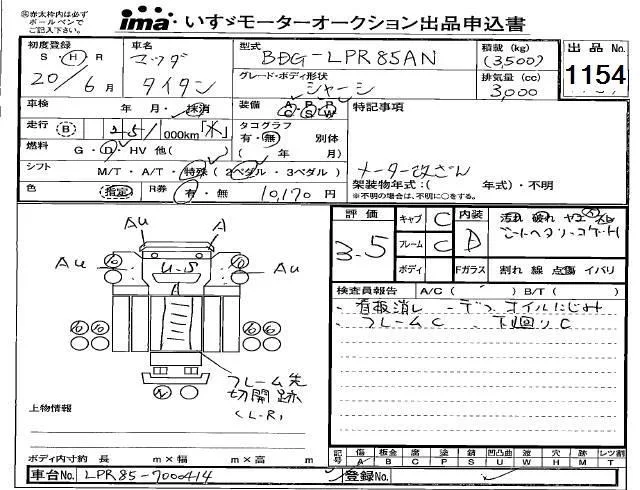 ㊟赤太枠内は必ず
ボールペンで
ご記入下さい。
ima いすゞモーターオークション出品申込書
初度登録 車名 型式 積載 (kg) 出品 No.
S・H・R マツダ BDG-LPR85AN (3,500) 1154
20年 6月 タイタン グレード・ボディ形状 シャーシ 排気量 (cc) 3,000
車検 年 月・抹消 装備 A/C P/S P/W 特記事項
走行 B 000km タコグラフ
有・無 別体
燃料 G・D・HV 他( ) ( 年 月)
シフト M/T・A/T・特殊(2ペダル・3ペダル) メーター改ざん
架装物年式:( 年式)・不明
色 指定 R券 有・無 10,170 円 ※不明の場合は、不明に○をする。
評価 3.5 キャブ C 内装 D 汚れ 破れ ヤコゲ
フレーム C
ボディ Fガラス 割れ 線 点傷 イバリ
検査員報告 A/C( ) B/T( )
・看板消し ・デフ オイルにじみ
・フレームC 下回りC
Au A
Au Au
U-S
A
フレーム先
切開跡
(L-R)
上物情報
ボディ内寸約 長 m×幅 m×高 m
記号 傷 板金 腐 塗 錆 凹凸曲 波 穴 跡 レツ割
A B C P S U W H M T
車台No. LPR85-7000414 登録No.